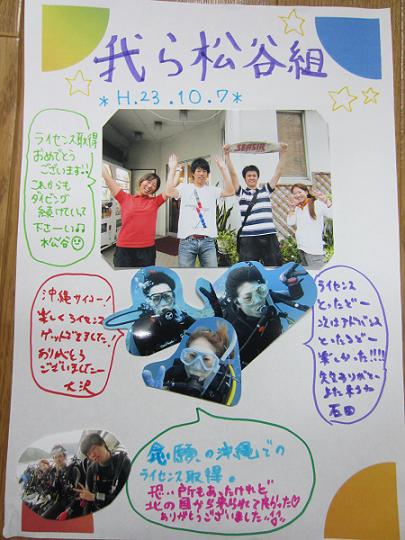 我ら松谷組
*H.23.10.7*
SEASIR
ライセンス取得
おめでとう
ございます!!
これからも
ダイビング
続けていて
下さーい♫
松谷☺
沖縄サイコー!
楽しくライセンス
ゲットできました!
ありがとう
ございましたー
大沢
ライセンス
とったどー
次はアドバンス
とったるどー
楽しかった!!!!
先生ありがとー
また来るね
石田
念願の沖縄での
ライセンス取得。
恐い所もあったけれど
北の国から来られて良かった♡
ありがとうございました